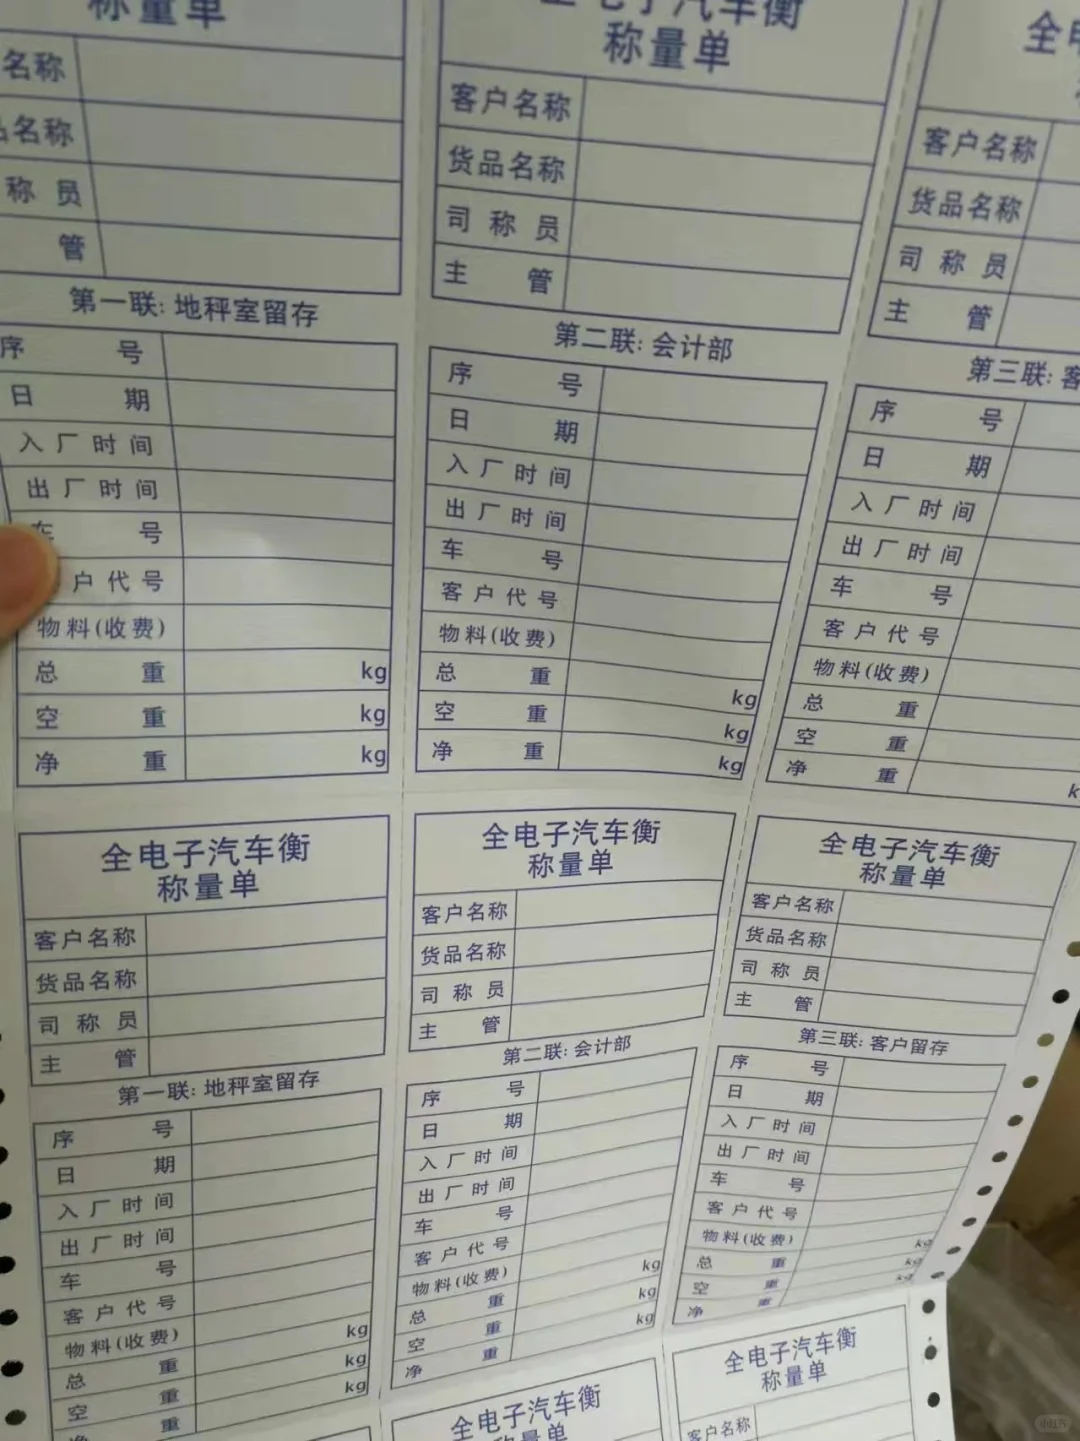 称量单
名称
名称
称 员
管
第一联: 地秤室留存
序 号
日 期
入厂时间
出厂时间
车 号
户代号
物料(收费)
总 重 kg
空 重 kg
净 重 kg
全电子汽车衡
称量单
客户名称
货品名称
司 称 员
主 管
第二联: 会计部
序 号
日 期
入厂时间
出厂时间
车 号
客户代号
物料(收费)
总 重 kg
空 重 kg
净 重 kg
全
客户名称
货品名称
司 称 员
主 管
第三联: 客
序 号
日 期
入厂时间
出厂时间
车 号
客户代号
物料(收费)
总 重
空 重
净 重 k
全电子汽车衡
称量单
客户名称
货品名称
司 称 员
主 管
第一联: 地秤室留存
序 号
日 期
入厂时间
出厂时间
车 号
客户代号
物料(收费) kg
总 重 kg
空 重 kg
重
全电子汽车衡
称量单
客户名称
货品名称
司 称 员
主 管
第二联: 会计部
序 号
日 期
入厂时间
出厂时间
车 号
客户代号
物料(收费) kg
总 重 kg
空 重 kg
净 重
全电子汽车衡
称量单
客户名称
货品名称
司 称 员
主 管
第三联: 客户留存
序 号
日 期
入厂时间
出厂时间
车 号
客户代号
物料(收费) kg
总 重 kg
空 重 kg
净 重
全电子汽车衡
称量单
全电子汽车衡
称量单
客户名称
小红书